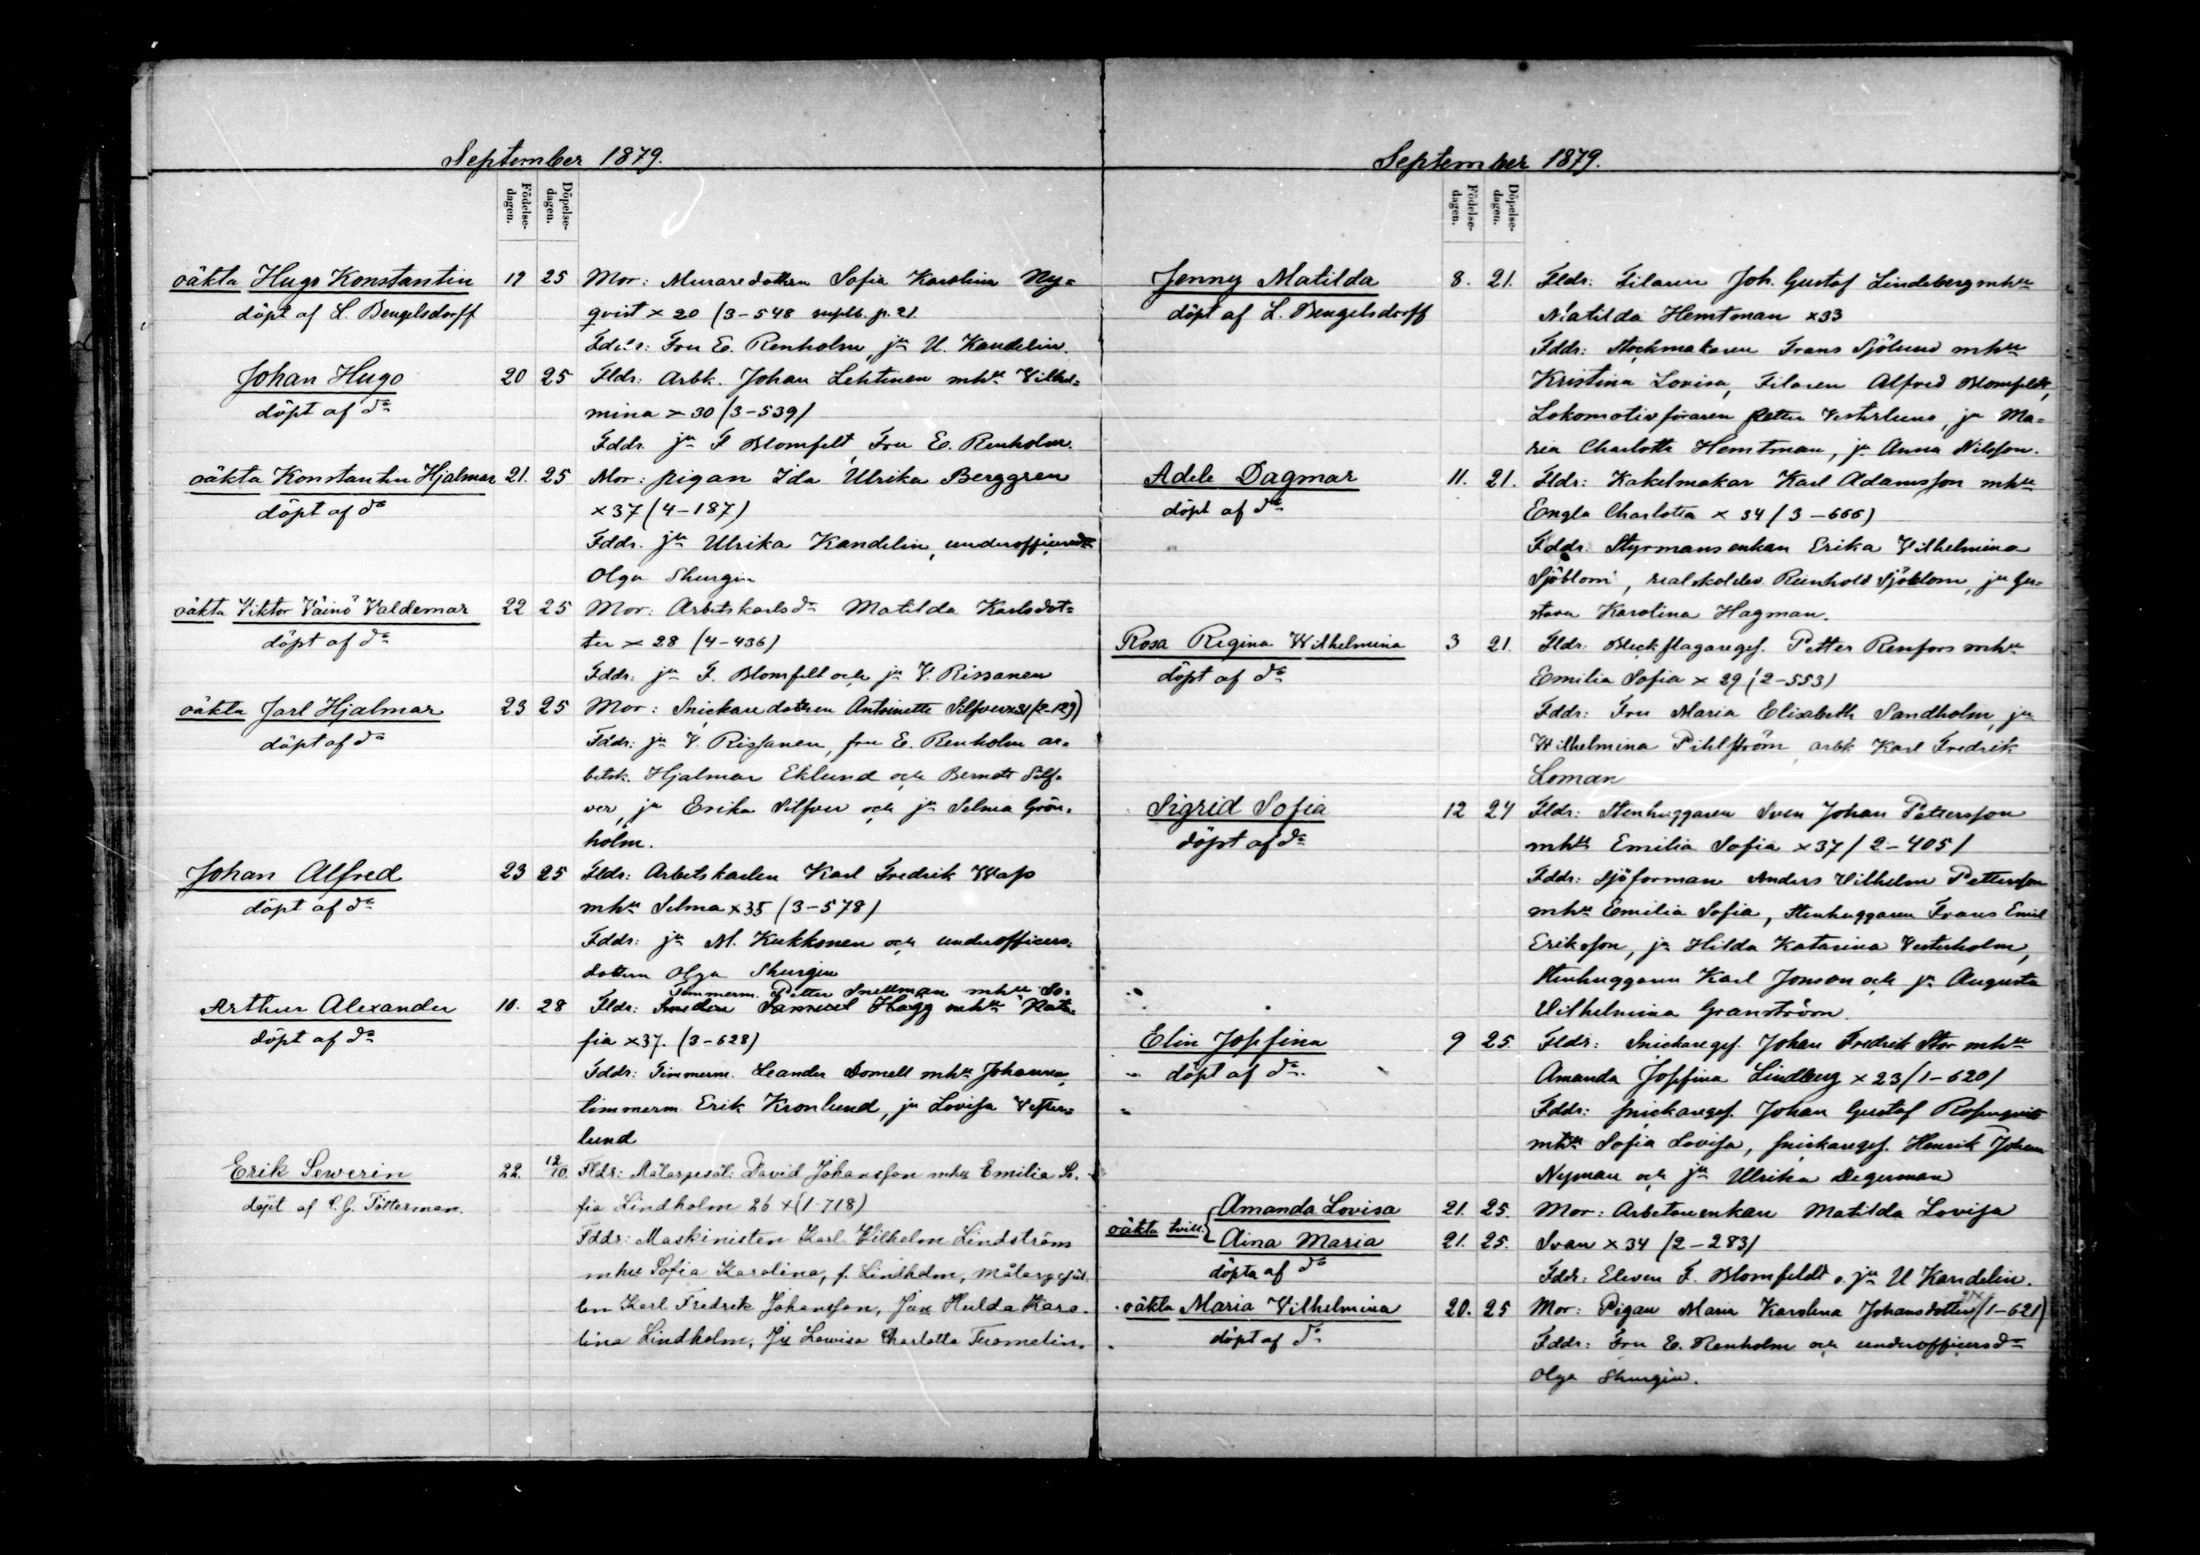 September 1879.
Födelse-
dagen.
Döpelse-
dagen.
oäkta Hugo Konstantin 19 25 Mor: Muraredottern Sofia Karolina Ny=
döpt af L. Bengelsdorff qvist × 20 (3-548 suplb. p. 21.
Fddrs: Fru E. Renholm, jn U. Kandelin.
Johan Hugo 20 25 Fldr: Arbk. Johan Lehtinen mhu Vilhel=
döpt af do mina × 30 (3-539)
Fddr. jn F Blomfelt, Fru E. Renholm.
oäkta Konstantin Hjalmar 21. 25 Mor: pigan Ida Ulrika Berggren
döpt af do ×37 (4-187)
Fddr. jn Ulrika Kandelin, underofficersdn
Olga Shurgin
oäkta Viktor Väinö Valdemar 22 25 Mor: Arbetskarlsdn Matilda Karlsdot=
döpt af do ter × 28 (4-436)
Fddr: jn F. Blomfelt och jn V. Rissanen
oäkta Jarl Hjalmar 23 25 Mor: Snickaredottern Antoinette Silfver ×31 (2-129)
döpt af do Fddr: jn V. Rissanen, fru E. Renholm ar=
betsk. Hjalmar Eklund och Berndt Silf=
ver, jn Erika Silfver och jn Selma Grön=
holm.
Johan Alfred 23 25 Fldr: Arbetskarlen Karl Fredrik Wass
döpt af do mhu Selma ×35 (3-578)
Fddr: jn M. Kukkonen och underofficers=
dottern Olga Shurgin
Timmerm. Petter Snellman mhu So=
Arthur Alexander 10. 28 Fldr: Smeden Samuel Hägg mhu Nata=
döpt af do fia ×37. (3-628)
Fddr: Timmerm. Leander Domell mhu Johanna,
timmerm. Erik Kronlund, jn Lovisa Vester=
lund
Erik Sewerin 22. 12/10. Fldr: Målaregesäl: David Johansson mhu Emilia So=
döpt af C. G. Tötterman. fia Lindholm 26 × (1-718)
Fddr: Maskinisten Karl Vilhelm Lindström
mhu Sofia Karolina, f. Lindholm, målargesäl=
len Karl Fredrik Johansson, Jun Hulda Karo=
lina Lindholm, Ju Lowisa Charlotta Tuomelin.
September 1879.
Födelse-
dagen.
Döpelse-
dagen.
Jenny Matilda 8. 21. Fldr: Filaren Joh. Gustaf Lindeberg mhu
döpt af L. Bengelsdorff Matilda Hemtman ×33
Fddr: Stockmakaren Frans Sjölund mhu
Kristina Lovisa, Filaren Alfred Blomfeldt,
Lokomotivföraren Petter Vesterlund, jn Ma=
ria Charlotta Hemtman, jn Anna Nilsson.
Adele Dagmar 11. 21. Fldr: Kakelmakar Karl Adamsson mhu
döpt af do Engla Charlotta × 34 (3-666)
Fddr. Styrmansenkan Erika Vilhelmina
Sjöblom, realskolelev. Reinhold Sjöblom, jn Gu=
stava Karolina Hagman.
Rosa Regina Wilhelmina 3 21. Fldr: Bleckslagaregs. Petter Renfors mhu
döpt af do Emilia Sofia × 29 (2-553)
Fddr: Fru Maria Elisabeth Sandholm, jn
Wilhelmina Pihlström, arbk Karl Fredrik
Loman
Sigrid Sofia 12 24 Fldr: Stenhuggaren Sven Johan Pettersson
döpt af do mhu Emilia Sofia ×37 (2-405)
Fddr: Sjöforman Anders Vilhelm Pettersson
mhu Emilia Sofia, Stenhuggaren Frans Emil
Eriksson, jn Hilda Katarina Vesterholm,
Stenhuggaren Karl Jonson och jn Augusta
Vilhelmina Granström.
Elin Josefina 9 25. Fldr: Snickaregs. Johan Fredrik Stor mhu
döpt af do Amanda Josefina Lindberg × 23 (1-620)
Fddr: snickaregs. Johan Gustaf Rosenqvist
mhu Sofia Lovisa, snickaregs. Henrik Johan
Nyman och jn Ulrika Degerman
Amanda Lovisa 21. 25. Mor: Arbetareenkan Matilda Lovisa
oäkta tvill. Aina Maria 21. 25. Svan × 34 (2-283)
döpta af do Fddr: Eleven F. Blomfeldt o. jn U Kandelin.
oäkta Maria Vilhelmina 20. 25 Mor: Pigan Maria Karolina Johansdotter (1-621)
döpt af do Fddr: Fru E. Renholm och underofficersdn
Olga Shurgin.